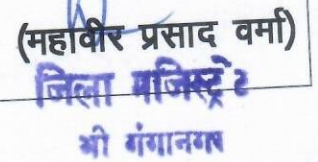 (महावीर प्रसाद वर्मा)
जिला मजिस्ट्रेट
श्री गंगानगर